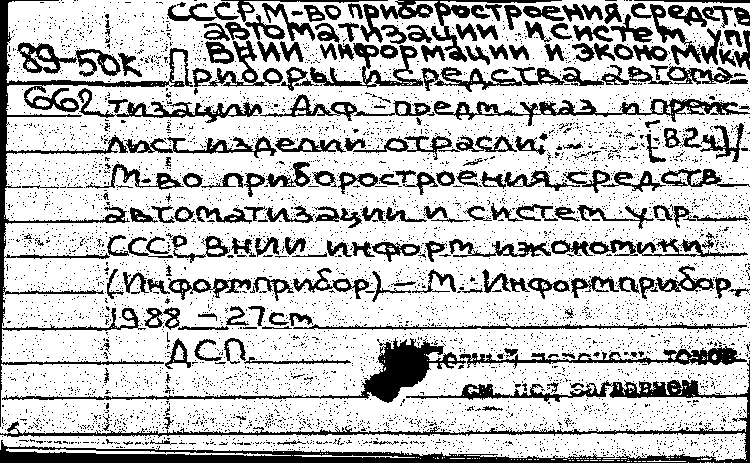 СССР, М-во приборостроения, средств
автоматизации и систем упр
ВНИИ информации и экономики
89-50к Приборы и средства автома-
662 тизации: Алф.-предм. указ. и прейс-
лист изделий отрасли; [В 2ч]/
М-во приборостроения, средств
автоматизации и систем упр.
СССР, ВНИИ информ и экономики
(Информприбор) – М.: Информприбор,
1988 – 27см
ДСП.
Полный перечень томов
см. под заглавием